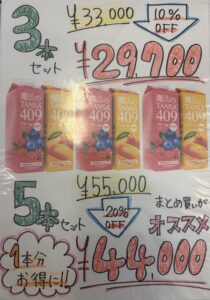 3本セット
¥33,000
10%
OFF
¥29,700
魔法の
TANSA
409
魔法の
TANSA
409
魔法の
TANSA
409
5本セット
¥55,000
20%
OFF
まとめ買いが
オススメ
¥44,000
1本分
お得に!!